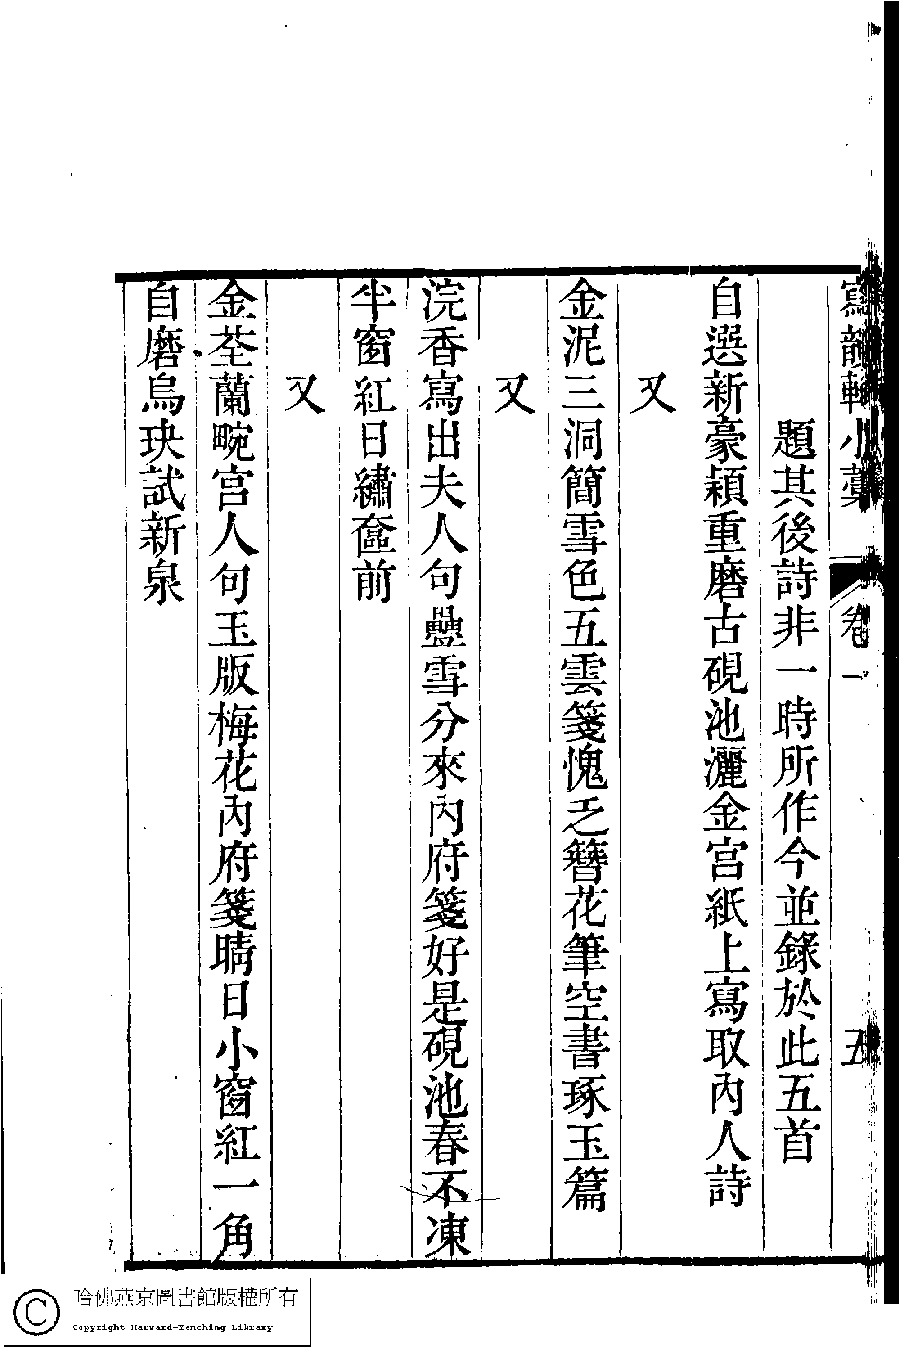 寫韻軒小藁 卷一 五
題其後詩非一時所作今並錄於此五首
自選新豪穎重磨古硯池灑金宮紙上寫取內人詩
又
金泥三洞簡雪色五雲箋愧乏簪花筆空書琢玉篇
又
浣香寫出夫人句疊雪分來內府箋好是硯池春不凍
半窗紅日繡奩前
又
金荃蘭畹宮人句玉版梅花內府箋晴日小窗紅一角
自磨烏玦試新泉
哈佛燕京圖書館版權所有
Copyright Harvard-Yenching Library